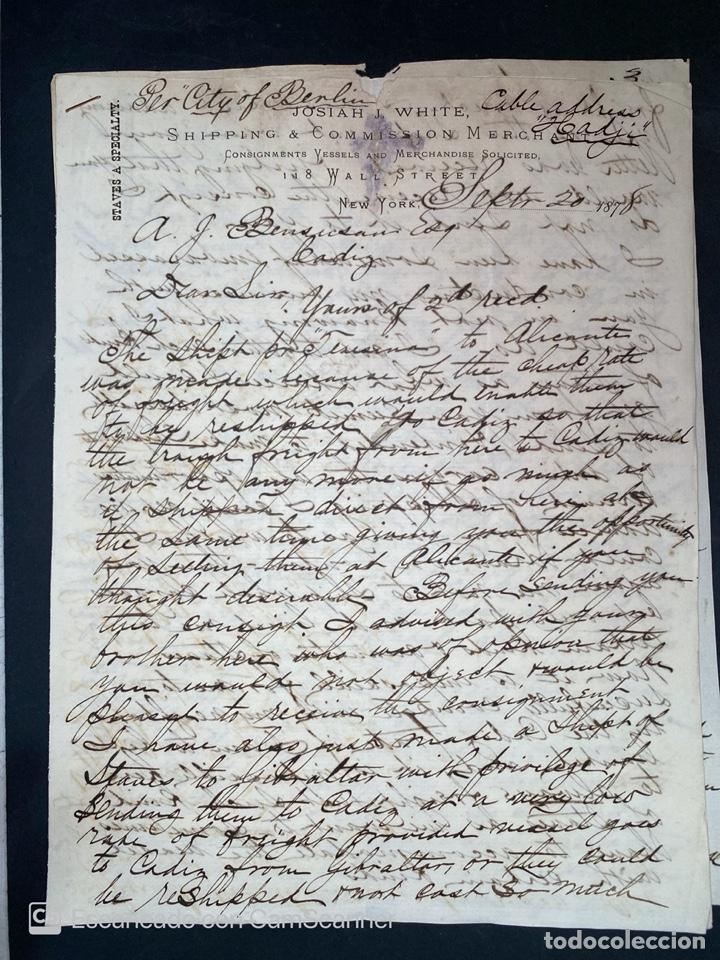 2
Per "City of Berlin
Cable address
"Hadji"
STAVES A SPECIALTY.
JOSIAH J. WHITE,
SHIPPING & COMMISSION MERCHANT
CONSIGNMENTS VESSELS AND MERCHANDISE SOLICITED,
118 WALL STREET
NEW YORK, Sept 20 1878
A. J. Bensusan Esq
Cadiz
Dear Sir. Yours of 2d recd
The shipt pr to Alicante
was made because of the cheap rate
of freight which would enable them
to be reshipped to Cadiz so that
the through freight from here to Cadiz would
not be any more if so much as
if shipped direct from here at
the same time giving you the opportunity
of selling them at Alicante if you
thought desirable. Before sending you
this consigt I advised with your
brother here who was of opinion that
you would not object & would be
pleased to receive the consignment
I have also just made a shipt of
Staves to Gibraltar with privilege of
sending them to Cadiz at a very low
rate of freight provided vessel goes
to Cadiz from Gibraltar, or they could
be reshipped & not cost so much
CS Escaneado con CamScanner
todocoleccion